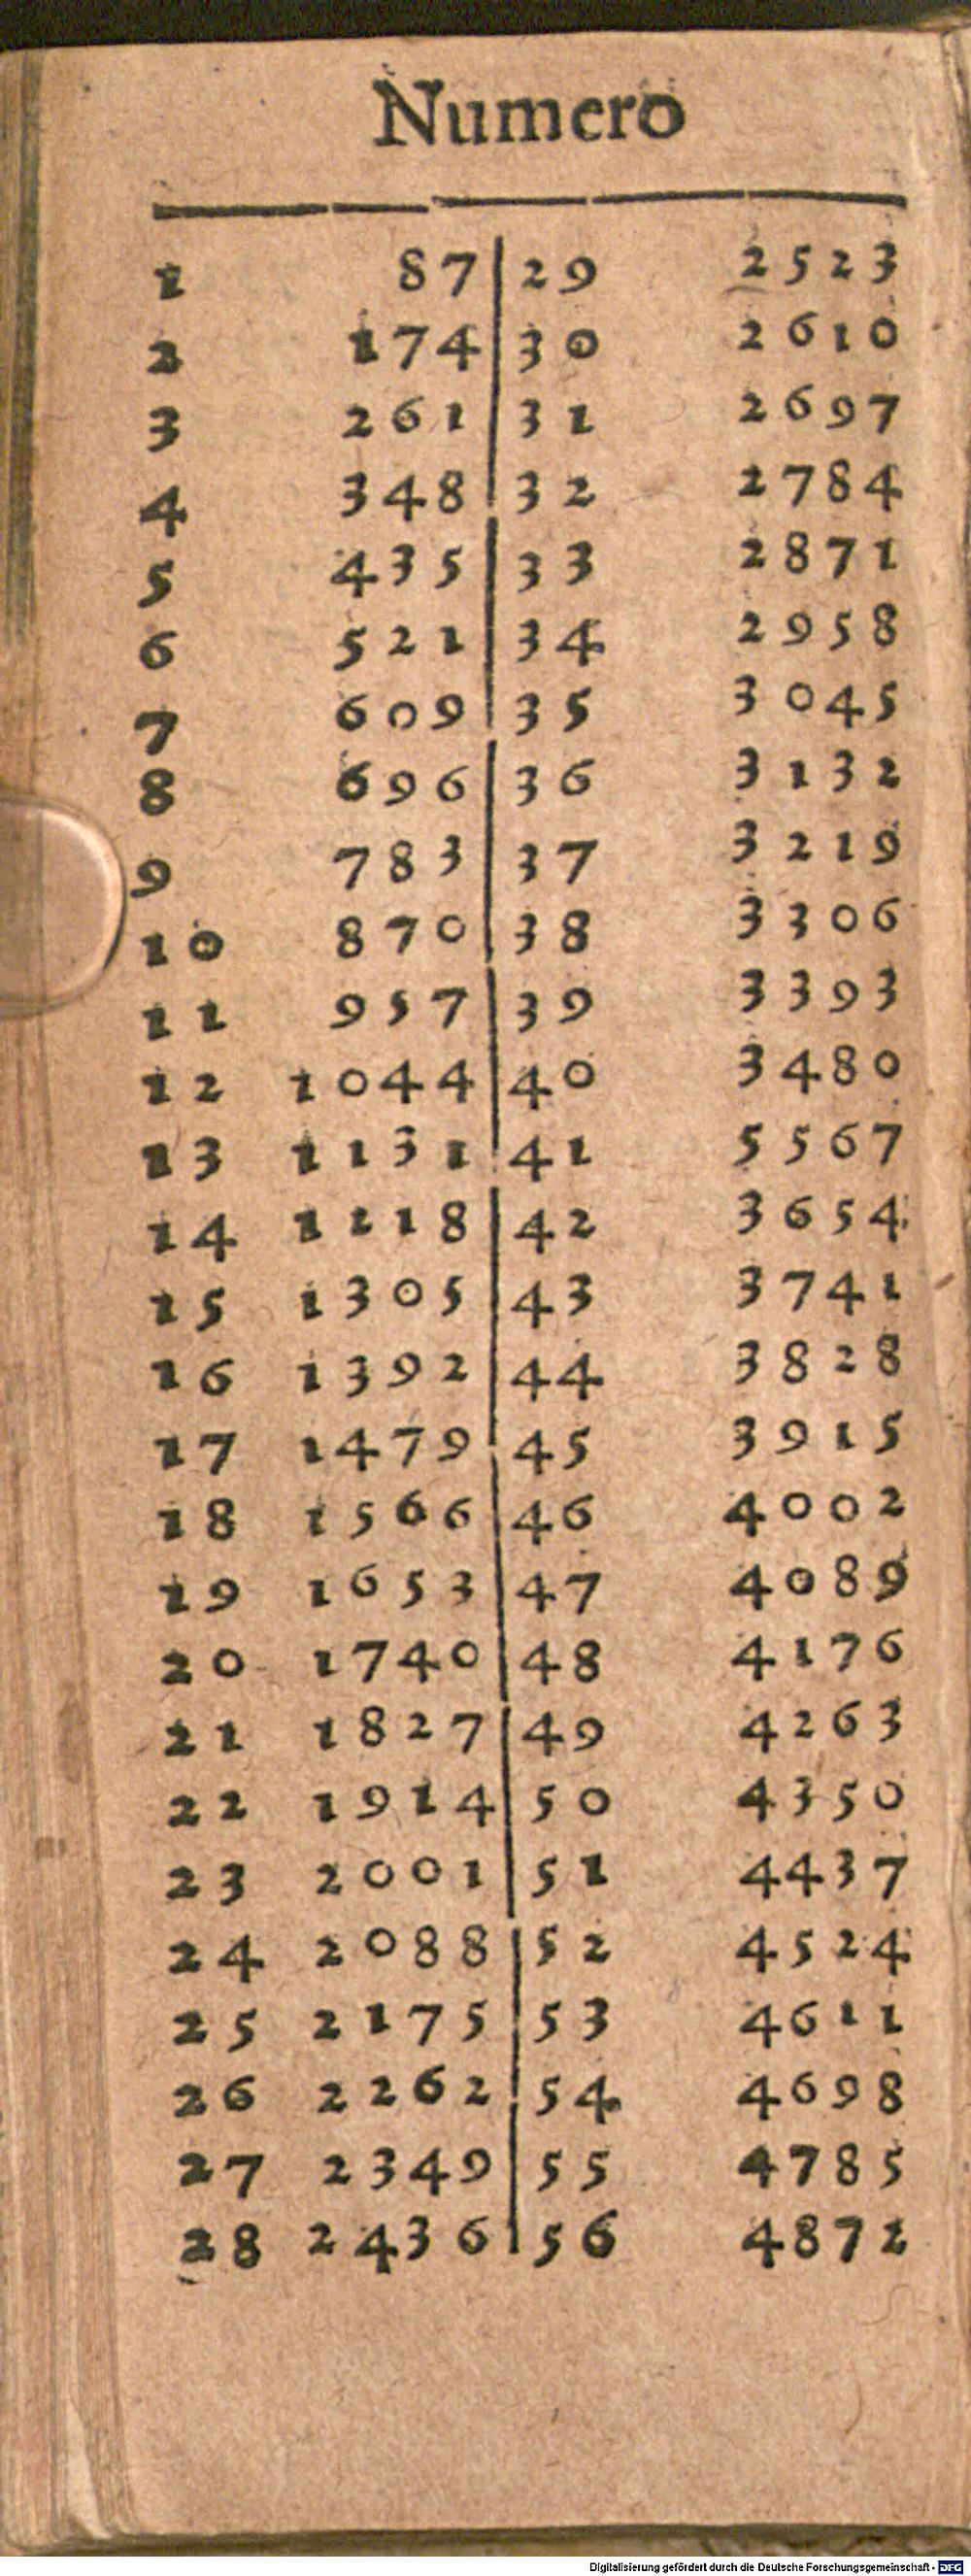 Numero
1 87 29 2523
2 174 30 2610
3 261 31 2697
4 348 32 2784
5 435 33 2871
6 521 34 2958
7 609 35 3045
8 696 36 3132
9 783 37 3219
10 870 38 3306
11 957 39 3393
12 1044 40 3480
13 1131 41 5567
14 1118 42 3654
15 1305 43 3741
16 1392 44 3828
17 1479 45 3915
18 1566 46 4002
19 1653 47 4089
20 1740 48 4176
21 1827 49 4263
22 1914 50 4350
23 2001 51 4437
24 2088 52 4524
25 2175 53 4611
26 2262 54 4698
27 2349 55 4785
28 2436 56 4872
Digitalisierung gefördert durch die Deutsche Forschungsgemeinschaft - DFG